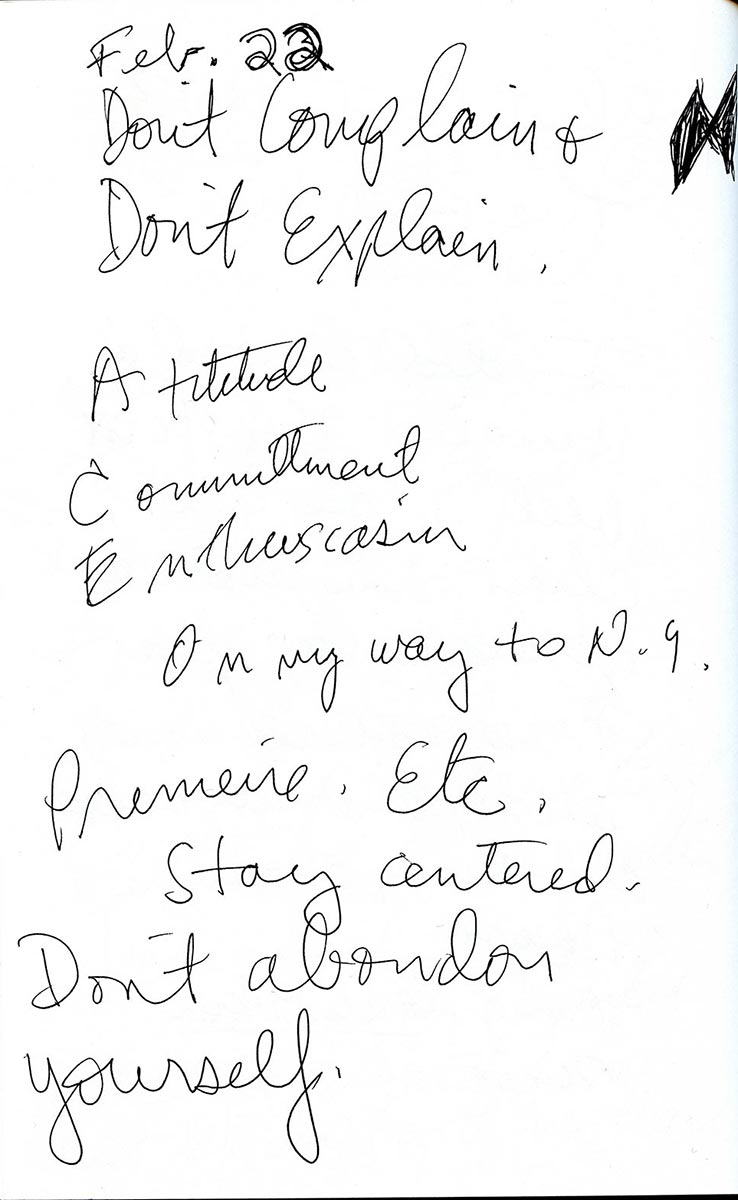 Feb. 22
Don't Complain &
Don't Explain.
Attitude
Committment
Enthusiasm
On my way to N.Y.
Premeire. Etc.
Stay centered.
Don't abandon
yourself.